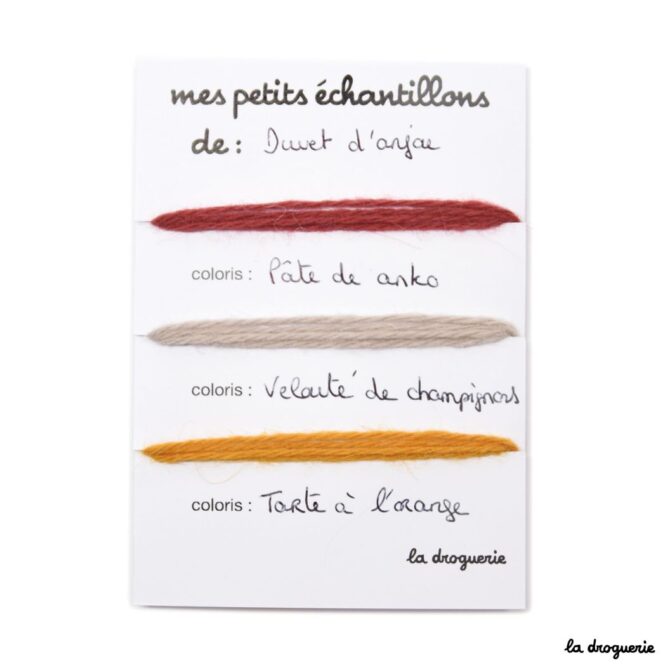 mes petits échantillons
de : Duvet d'anjou
coloris : Pâte de anko
coloris : Velouté de champignons
coloris : Tarte à l'orange
la droguerie
la droguerie